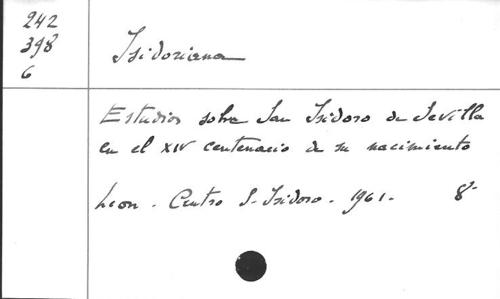 242
398
6
Isidoriana
Estudios sobre San Isidoro de Sevilla
en el XIV centenario de su nacimiento
Leon - Centro S. Isidoro - 1961 - 8º